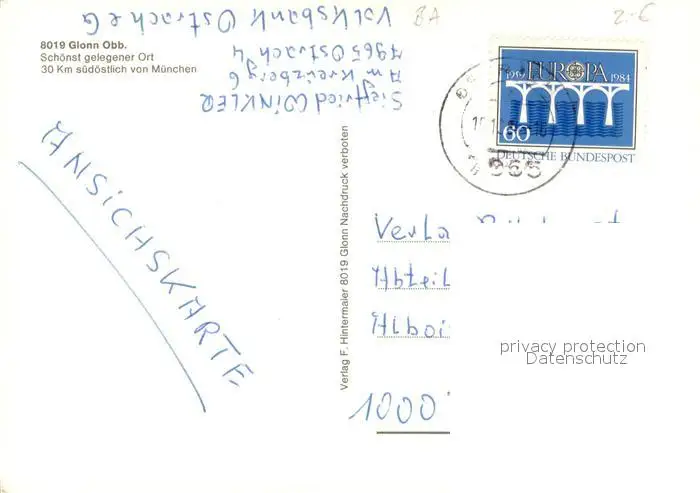 Volksbank Ostrach eG
BA
2.-€
8019 Glonn Obb.
Schönst gelegener Ort
30 Km südöstlich von München
Siegfried WINKLER
Am Kreuzberg 6
7965 Ostrach 4
1959 EUROPA 1984
60
DEUTSCHE BUNDESPOST
ANSICHSKARTE
Verlag F. Hintermaier 8019 Glonn Nachdruck verboten
Verla
Abteil
Alboi
1000
privacy protection
Datenschutz